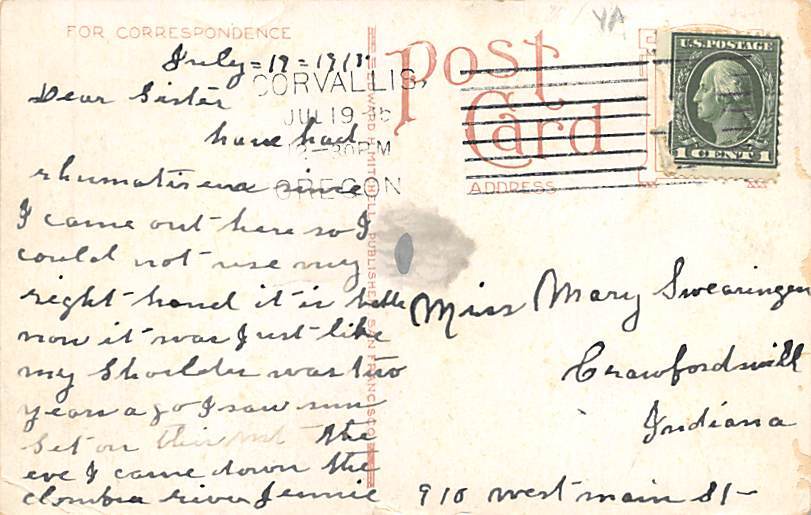 YA
FOR CORRESPONDENCE
Post Card
ADDRESS
U.S. POSTAGE
1 CENT 1
CORVALLIS,
JUL 19
30 PM
OREGON
EDWARD H. MITCHELL, PUBLISHER, SAN FRANCISCO
July = 19 = 191
Dear Sister
have had
rhumatisem since
I came out here so I
could not use my
right hand it is bette
now it was Just like
my Sholder was two
years ago I saw sun
Set on this mt the
eve I came down the
clombia river Jennie
Miss Mary Swearingen
Crawfordsvill
Indiana
910 west main St-